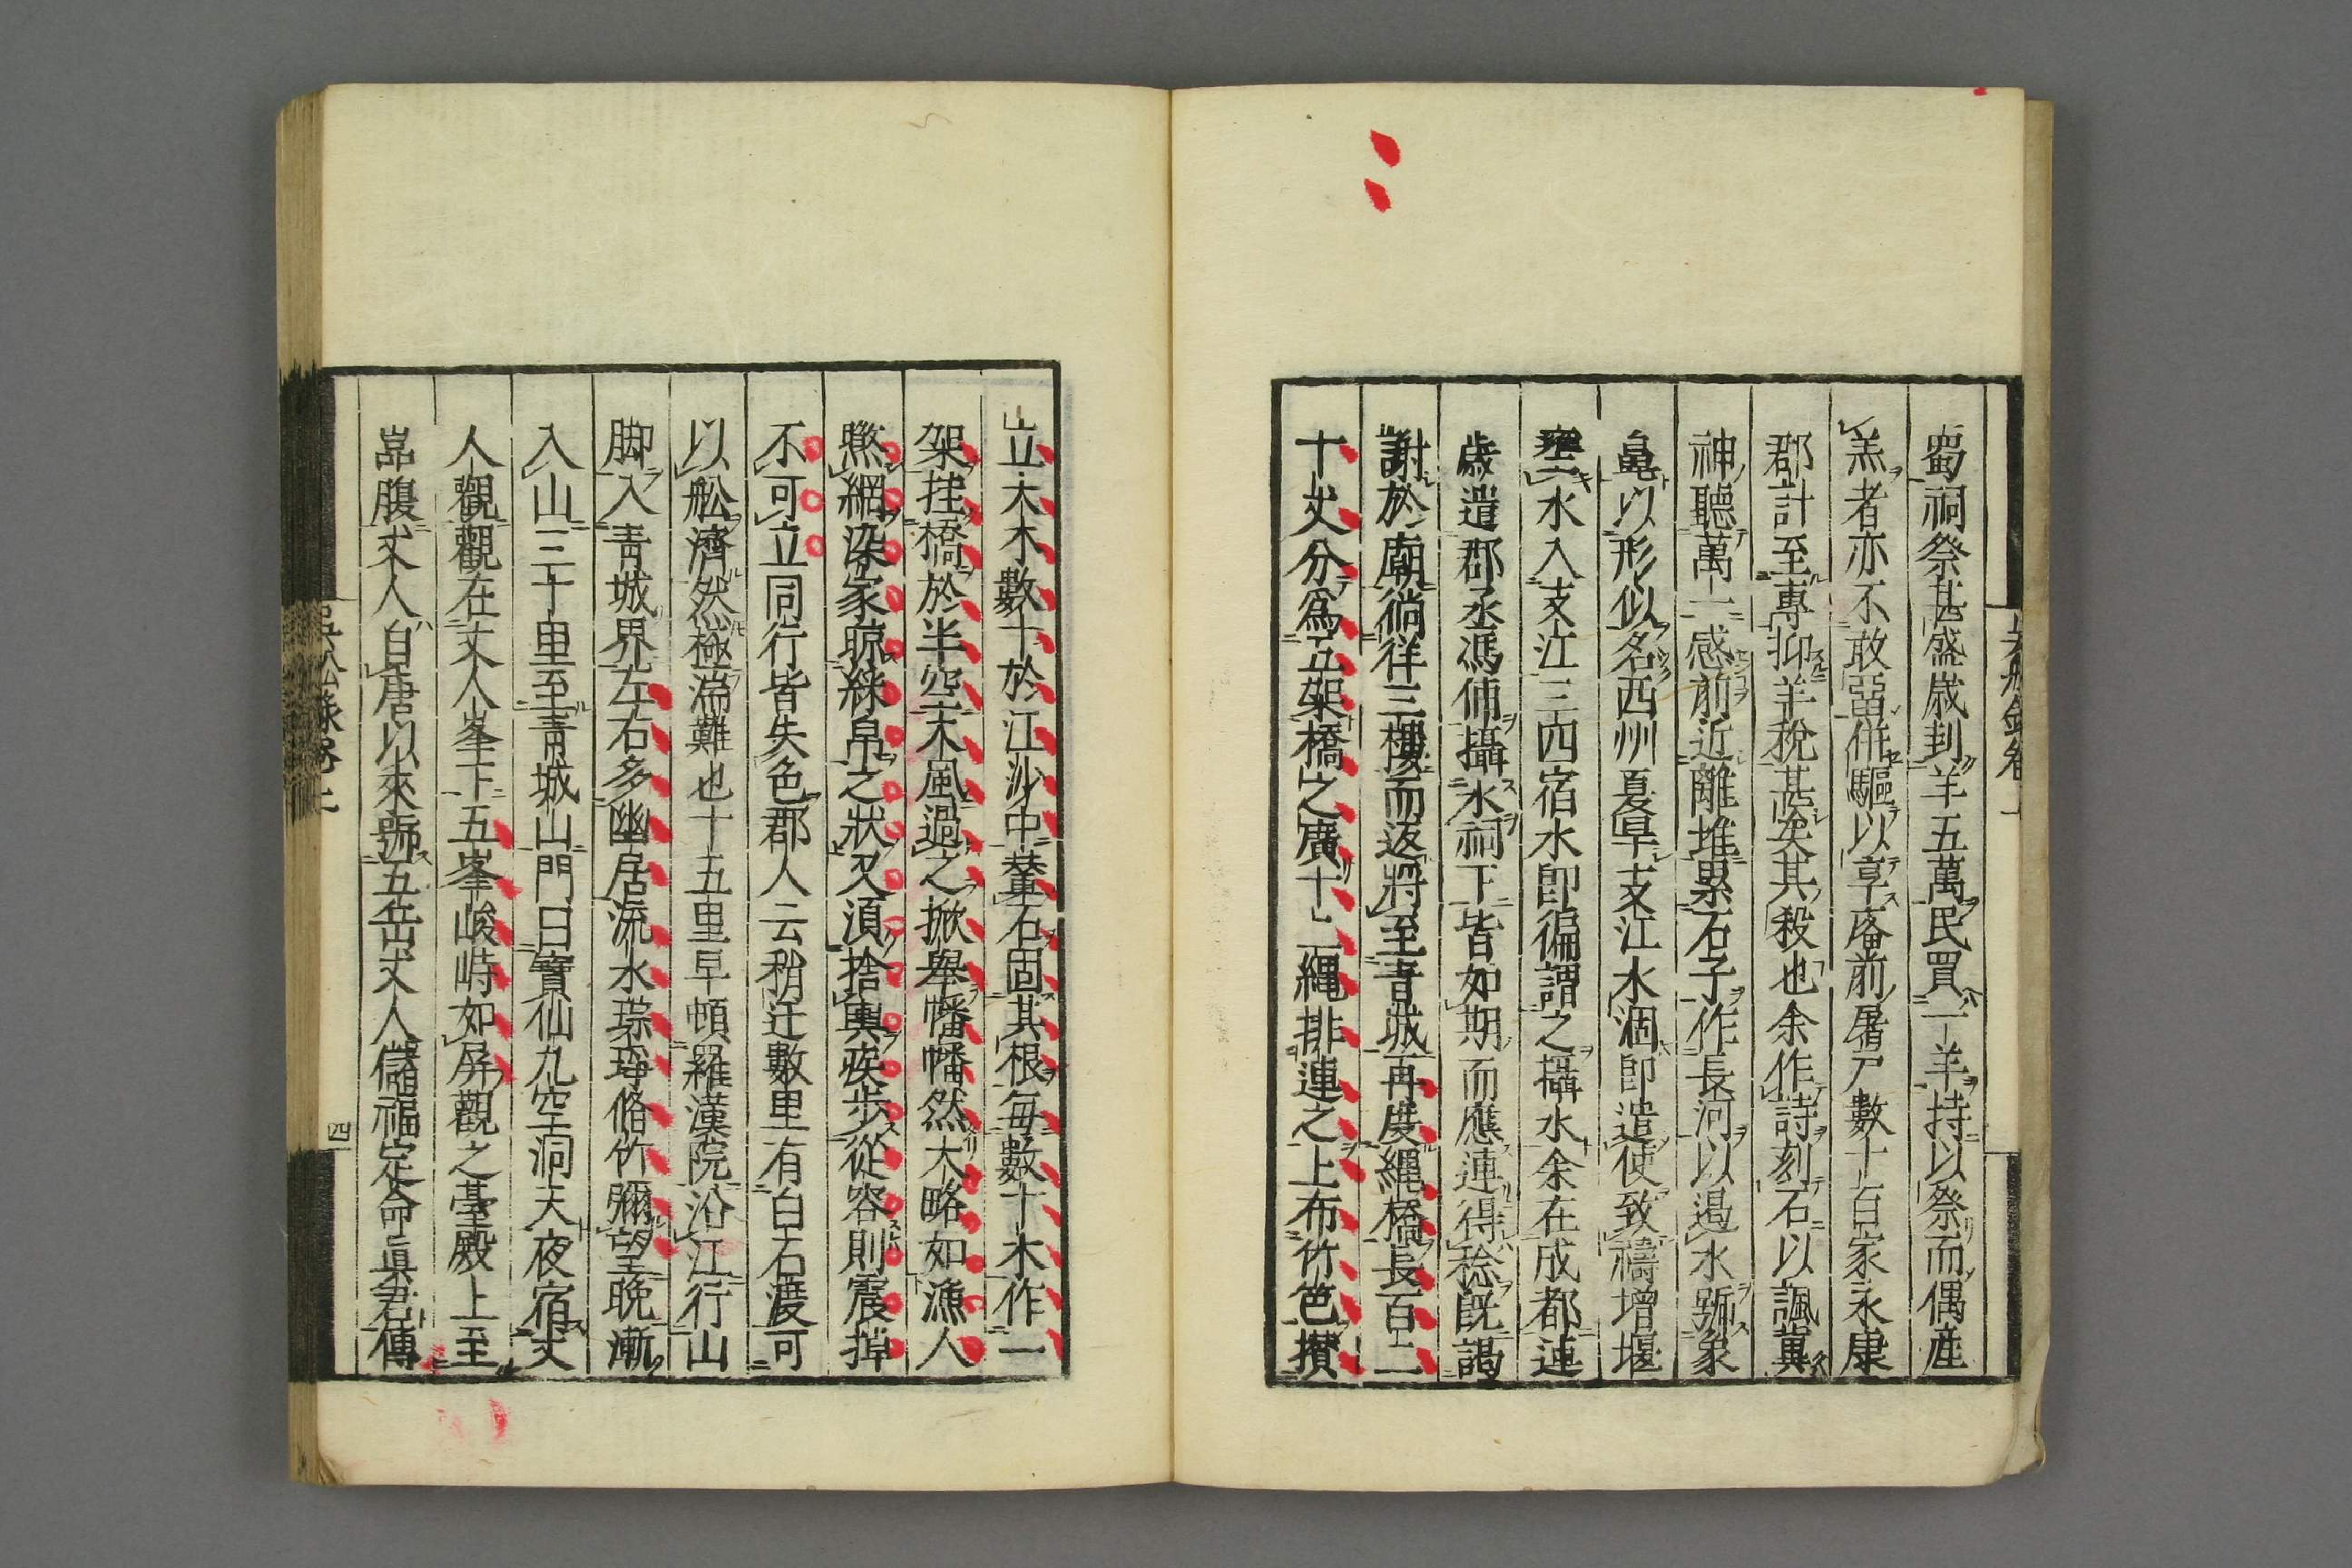 蜀祠祭甚盛歳刲羊五萬民買一羊持以祭而偶産
羔者亦不敢畱併驅以享庿前屠戸數十百家永康
郡計至專抑羊稅甚矣其殺也余作詩刻石以諷冀
神聽萬一感前近離堆累石子作長河以遏水號象
鼻以形似名西州夏旱支江水涸卽遣使致禱增堰
壅水入支江三四宿水卽徧謂之攝水余在成都連
歳遣郡丞馮俌攝水祠下皆如期而應連得稔旣謁
謝於廟徜徉三樓而返將至青城再度繩橋長百二
十丈分爲五架橋之廣十二繩排連之上布竹笆攢
立大木數十於江沙中輂石固其根每數十木作一
架挂橋於半空大風過之掀舉幡幡然大略如漁人
㬠網染家晾綵帛之狀又須捨輿疾步從容則震掉
不可立同行皆失色郡人云稍迂數里有白石渡可
以舩濟然極湍難也十五里早頓羅漢院沿江行山
脚入青城界左右多幽居流水琮琤脩竹彌望晚漸
入山三十里至青城山門曰寶仙九室洞天夜宿丈
人觀觀在丈人峯下五峯峻峙如屏觀之臺殿上至
嵓腹丈人自唐以來號五岳丈人儲福定命眞君傳
吳船錄卷上
四